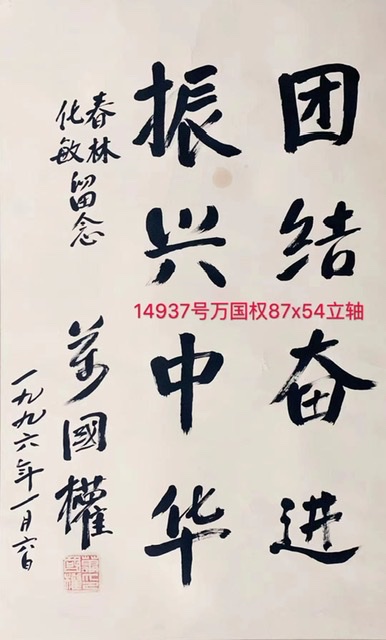 团结奋进
振兴中华
春林
化敏
留念
萬國權
一九九六年一月六日
14937号万国权87x54立轴